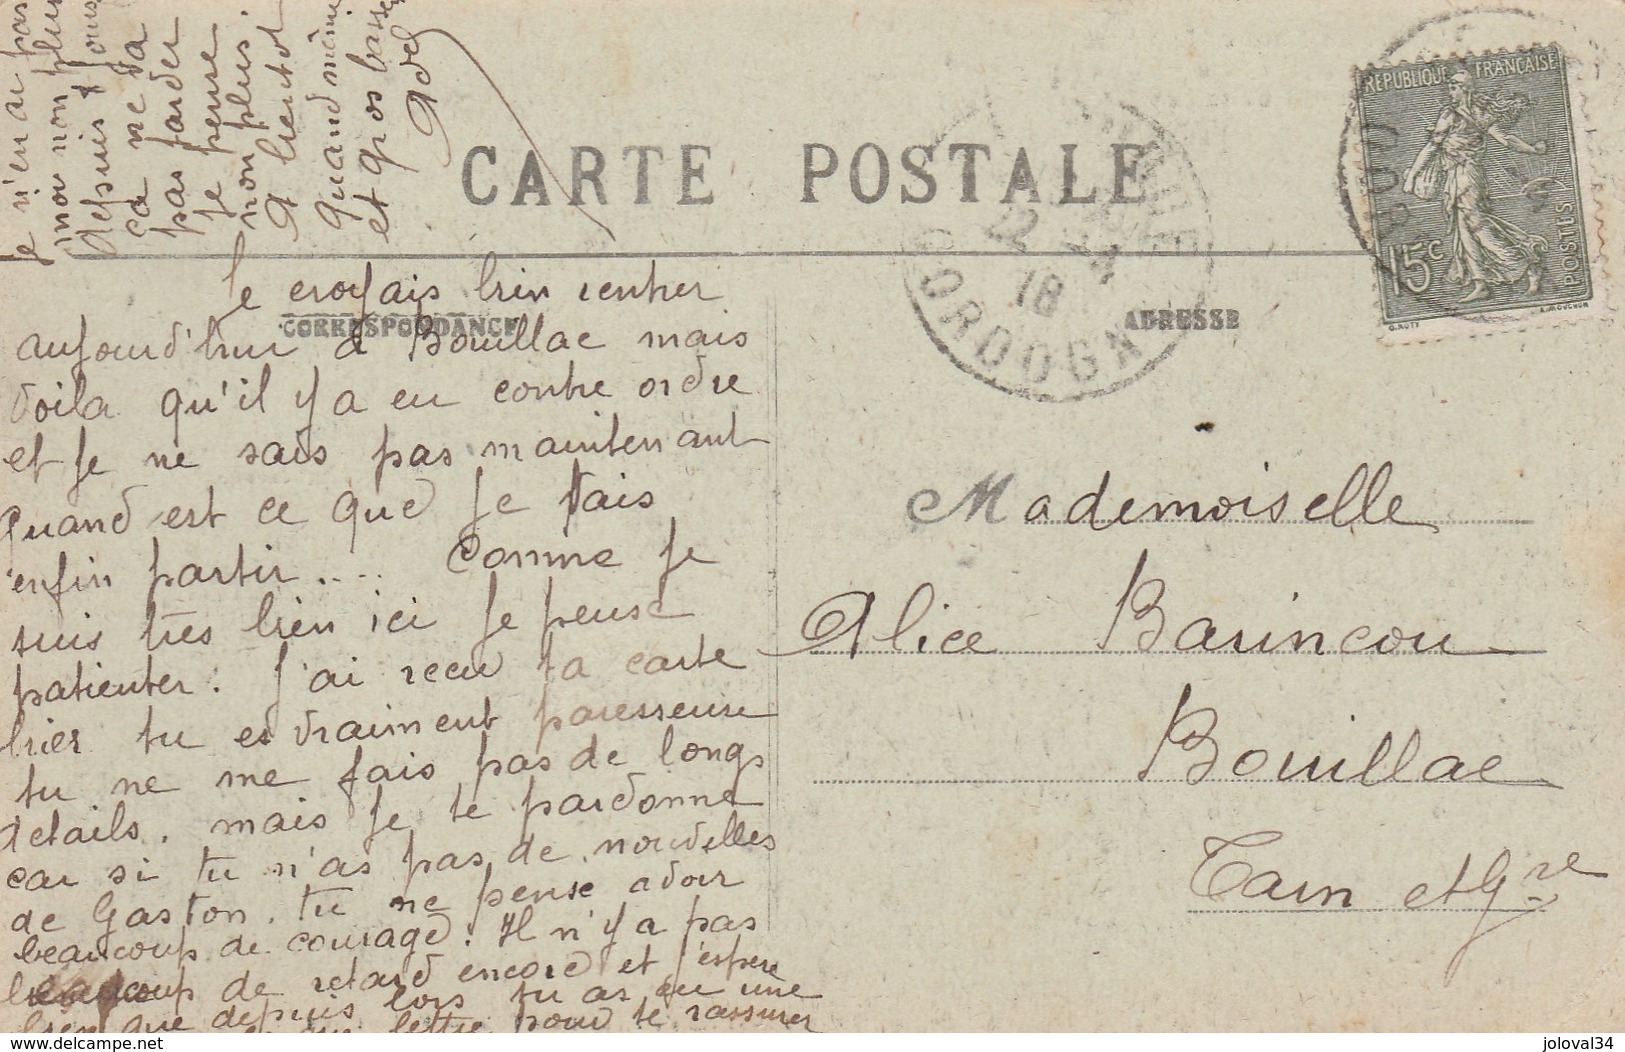 CARTE POSTALE
CORRESPONDANCE
ADRESSE
REPUBLIQUE FRANÇAISE
15c
POSTES
O. ROTY
L. MOUCHON
22 -4
18
DORDOGN
Je croyais bien rentrer
aujourd'hui à Bouillac mais
voila qu'il y a eu contre ordre
et je ne sais pas maintenant
Quand est ce que je vais
enfin partir.... Comme je
suis très bien ici je peuse
patienter. J'ai recu ta carte
hier tu es vraiment paresseuse
tu ne me fais pas de longs
details. mais je te pardonne
car si tu n'as pas de nouvelles
de Gaston. tu ne pense avoir
beaucoup de courage. Il n'y a pas
beaucoup de retard encore et j'espere
bien que depuis lors tu as eu une
lettre pour te rassurer
Je n'en ai pas
moi non plus
depuis 8 jours
ca ne va
pas tarder
je pense
non plus.
A bientot
quand même
et gros baisers
Adel
Mademoiselle
Alice Barincou
Bouillac
Tarn et Gne
delcampe.net
joloval34